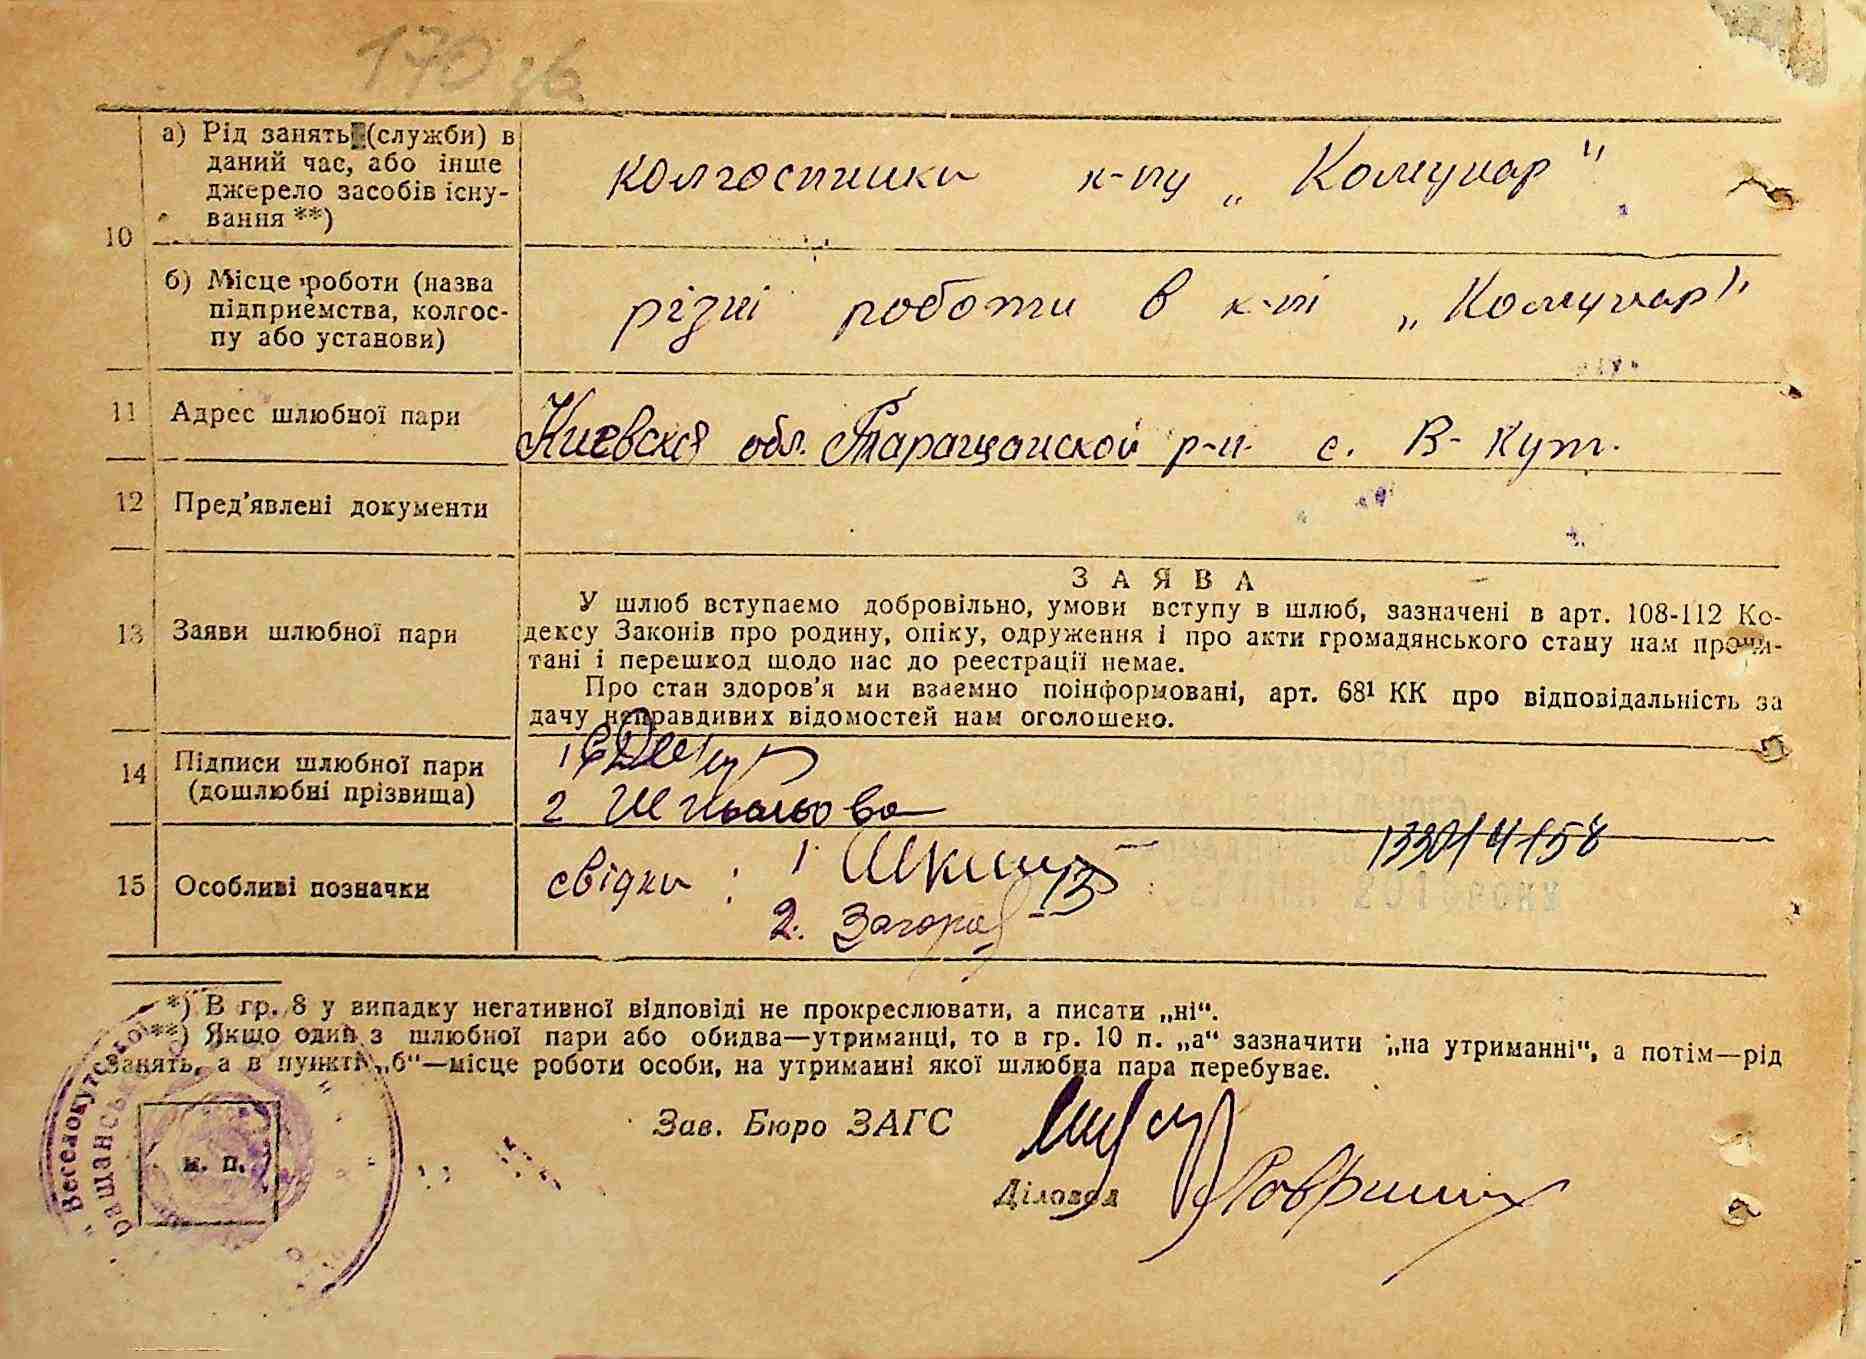 170 зв
10
а) Рід занять (служби) в
даний час, або інше
джерело засобів існу-
вання **)
колгоспники к-пу „Комунар"
б) Місце роботи (назва
підприємства, колгос-
пу або установи)
різні роботи в к-пі „Комунар"
11 Адрес шлюбної пари
Киевская обл. Таращанской р-н. с. В-Кут.
12 Пред'явлені документи
13 Заяви шлюбної пари
ЗАЯВА
У шлюб вступаємо добровільно, умови вступу в шлюб, зазначені в арт. 108-112 Ко-
дексу Законів про родину, опіку, одруження і про акти громадянського стану нам прочи-
тані і перешкод щодо нас до реєстрації немає.
Про стан здоров'я ми взаємно поінформовані, арт. 68¹ КК про відповідальність за
дачу неправдивих відомостей нам оголошено.
14 Підписи шлюбної пари
(дошлюбні прізвища)
1
2
15 Особливі позначки
свідки: 1.
2.
*) В гр. 8 у випадку негативної відповіді не прокреслювати, а писати „ні“.
**) Якщо один з шлюбної пари або обидва—утриманці, то в гр. 10 п. „а“ зазначити „на утриманні“, а потім—рід
занять, а в пункті „б“—місце роботи особи, на утриманні якої шлюбна пара перебуває.
Зав. Бюро ЗАГС
м. п.
Діловод